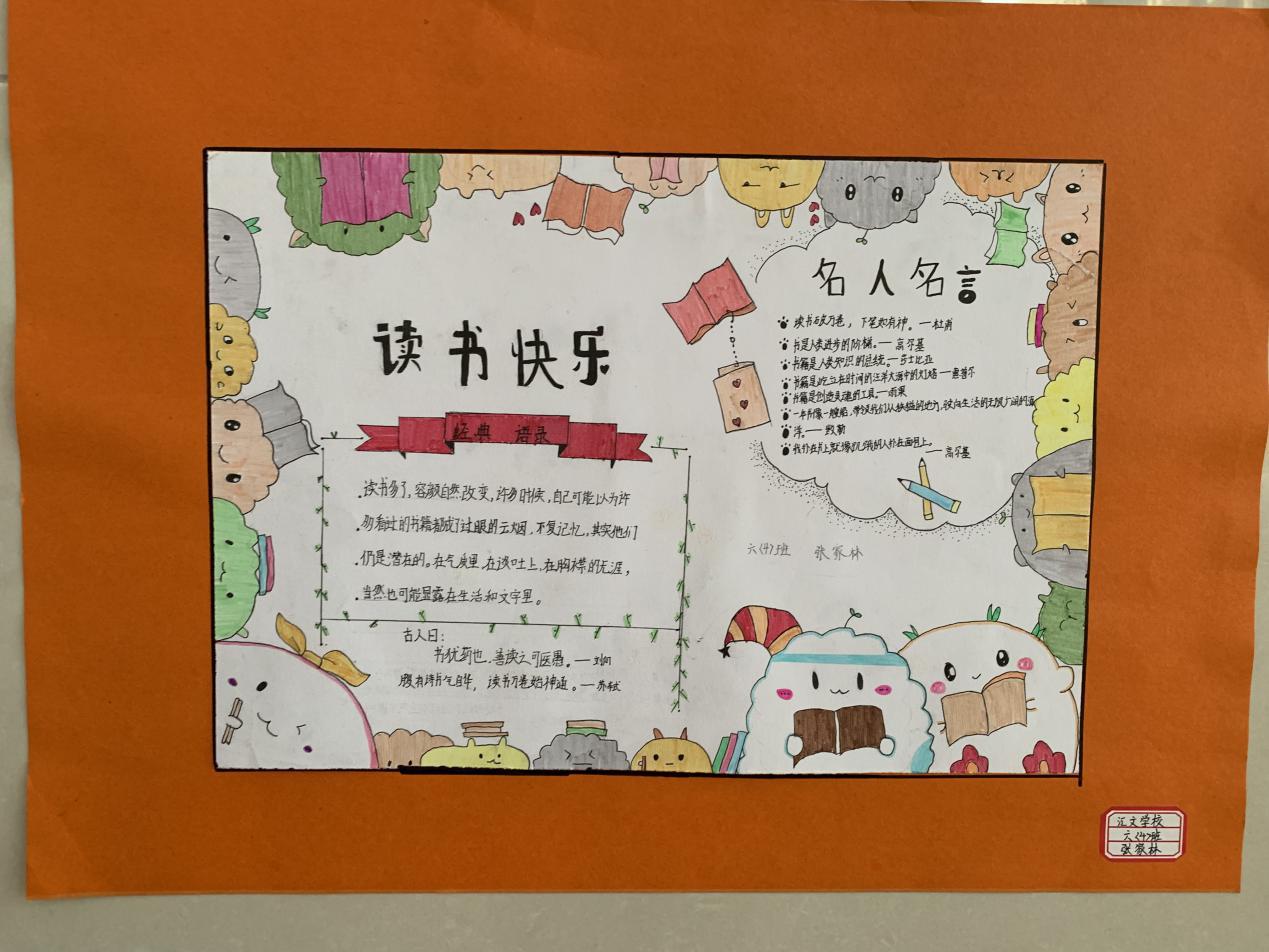 读书快乐
经典 语录
读书多了,容颜自然改变,许多时候,自己可能以为许
多看过的书籍都成了过眼的云烟,不复记忆,其实他们
仍是潜在的。在气质里,在谈吐上,在胸襟的无涯,
当然也可能显露在生活和文字里。
古人曰:
书犹药也,善读之可医愚。—刘向
腹有诗书气自华,读书万卷始神通。—苏轼
名人名言
读书破万卷,下笔如有神。—杜甫
书是人类进步的阶梯。—高尔基
书籍是人类知识的总统。—莎士比亚
书籍是屹立在时间的汪洋大海中的灯塔—惠普尔
书籍是创造灵魂的工具。—雨果
一本书像一艘船,带领我们从狭隘的地方,驶向生活的无限广阔的海
洋。—凯勒
我扑在书上就像饥饿的人扑在面包上。
—高尔基
六(4)班 张家林
汇文学校
六(4)班
张家林